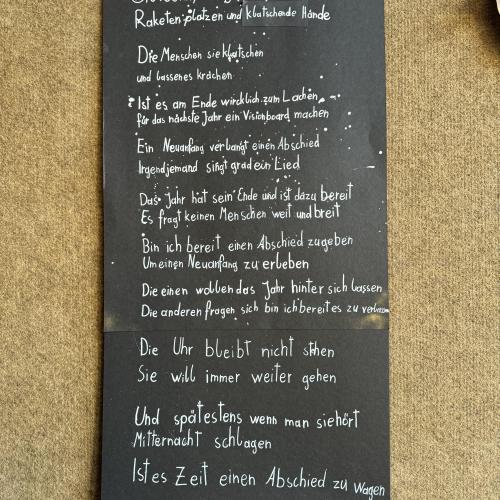 Raketen platzen und klatschende Hände
Die Menschen sie klatschen
und lassenes krachen
Ist es am Ende wircklich zum Lachen
für das nächste Jahr ein Visionboard machen
Ein Neuanfang verlangt einen Abschied
Irgendjemand singt grad ein Lied
Das Jahr hat sein Ende und ist dazu bereit
Es fragt keinen Menschen weit und breit
Bin ich bereit einen Abschied zugeben
Um einen Neuanfang zu erleben
Die einen wollen das Jahr hinter sich lassen
Die anderen fragen sich bin ich bereit es zu verlassen
Die Uhr bleibt nicht stehen
Sie will immer weiter gehen
Und spätestens wenn man sie hört
Mitternacht schlagen
Ist es Zeit einen Abschied zu wagen